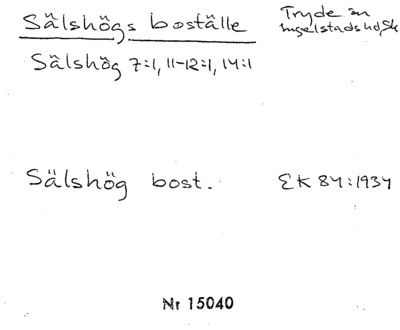 Sälshögs boställe
Tryde sn
Ingelstads hd, Sk
Sälshög 7:1, 11-12:1, 14:1
Sälshög bost.
EK 84:1934
Nr 15040